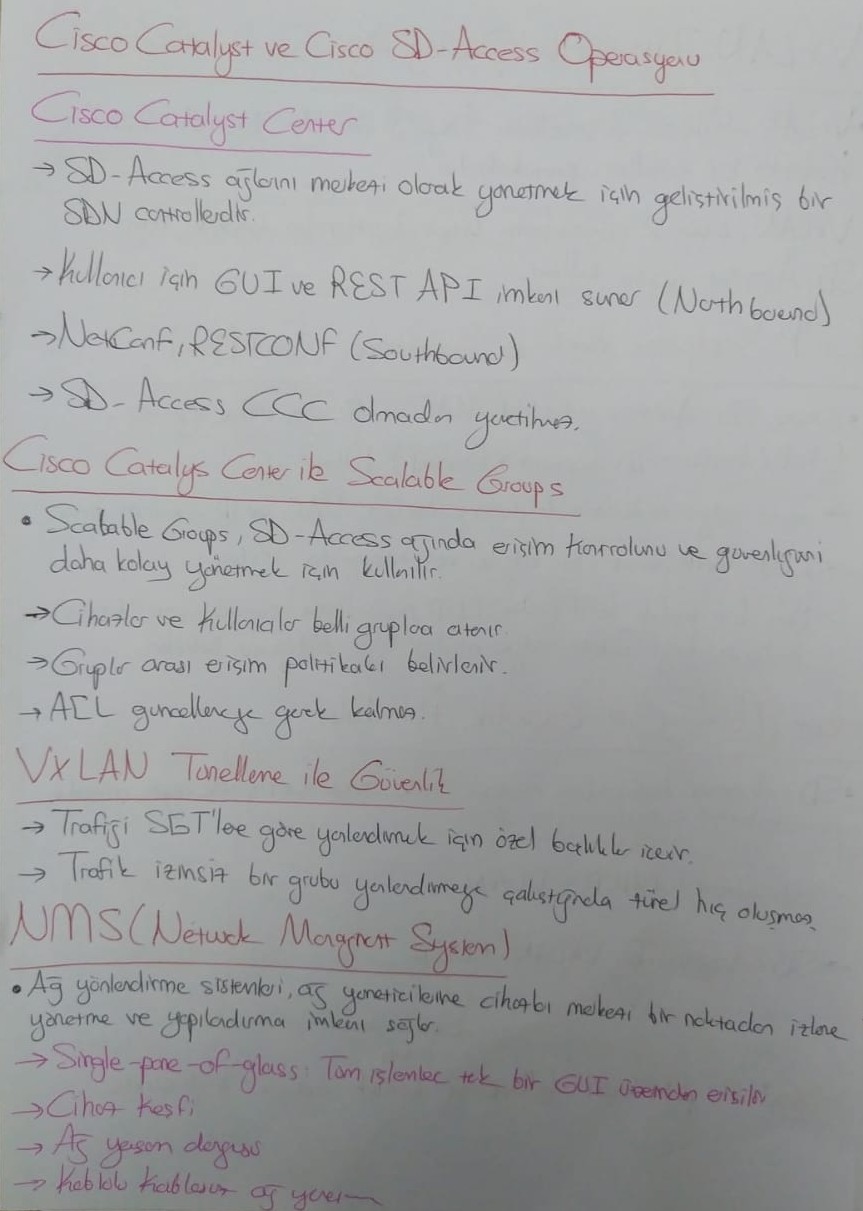 Cisco Catalyst ve Cisco SD-Access Operasyonu
Cisco Catalyst Center
→ SD-Access ağlarını merkezi olarak yönetmek için geliştirilmiş bir
SDN controllerdır.
→ Kullanıcı için GUI ve REST API imkanı sunar (Northbound)
→ NetConf, RESTCONF (Southbound)
→ SD-Access CCC olmadan yönetilmez.
Cisco Catalys Center ile Scalable Groups
• Scalable Groups, SD-Access ağında erişim kontrolunu ve güvenliğini
daha kolay yönetmek için kullanılır.
→ Cihazlar ve kullanıcılar belli gruplara atanır
→ Gruplar arası erişim politikaları belirlenir.
→ ACL güncellemeye gerek kalmaz.
VXLAN Tünelleme ile Güvenlik
→ Trafiği SGT'lere göre yönlendirmek için özel başlıklar içerir.
→ Trafik izinsiz bir grubu yönlendirmeye çalıştığında tünel hiç oluşmaz.
NMS (Network Management System)
• Ağ yönlendirme sistemleri, ağ yöneticilerine cihazları merkezi bir noktadan izleme
yönetme ve yapılandırma imkanı sağlar.
→ Single-pane-of-glass: Tüm işlemlere tek bir GUI üzerinden erişilir
→ Cihaz keşfi
→ Ağ yaşam döngüsü
→ Kablolu kablosuz ağ